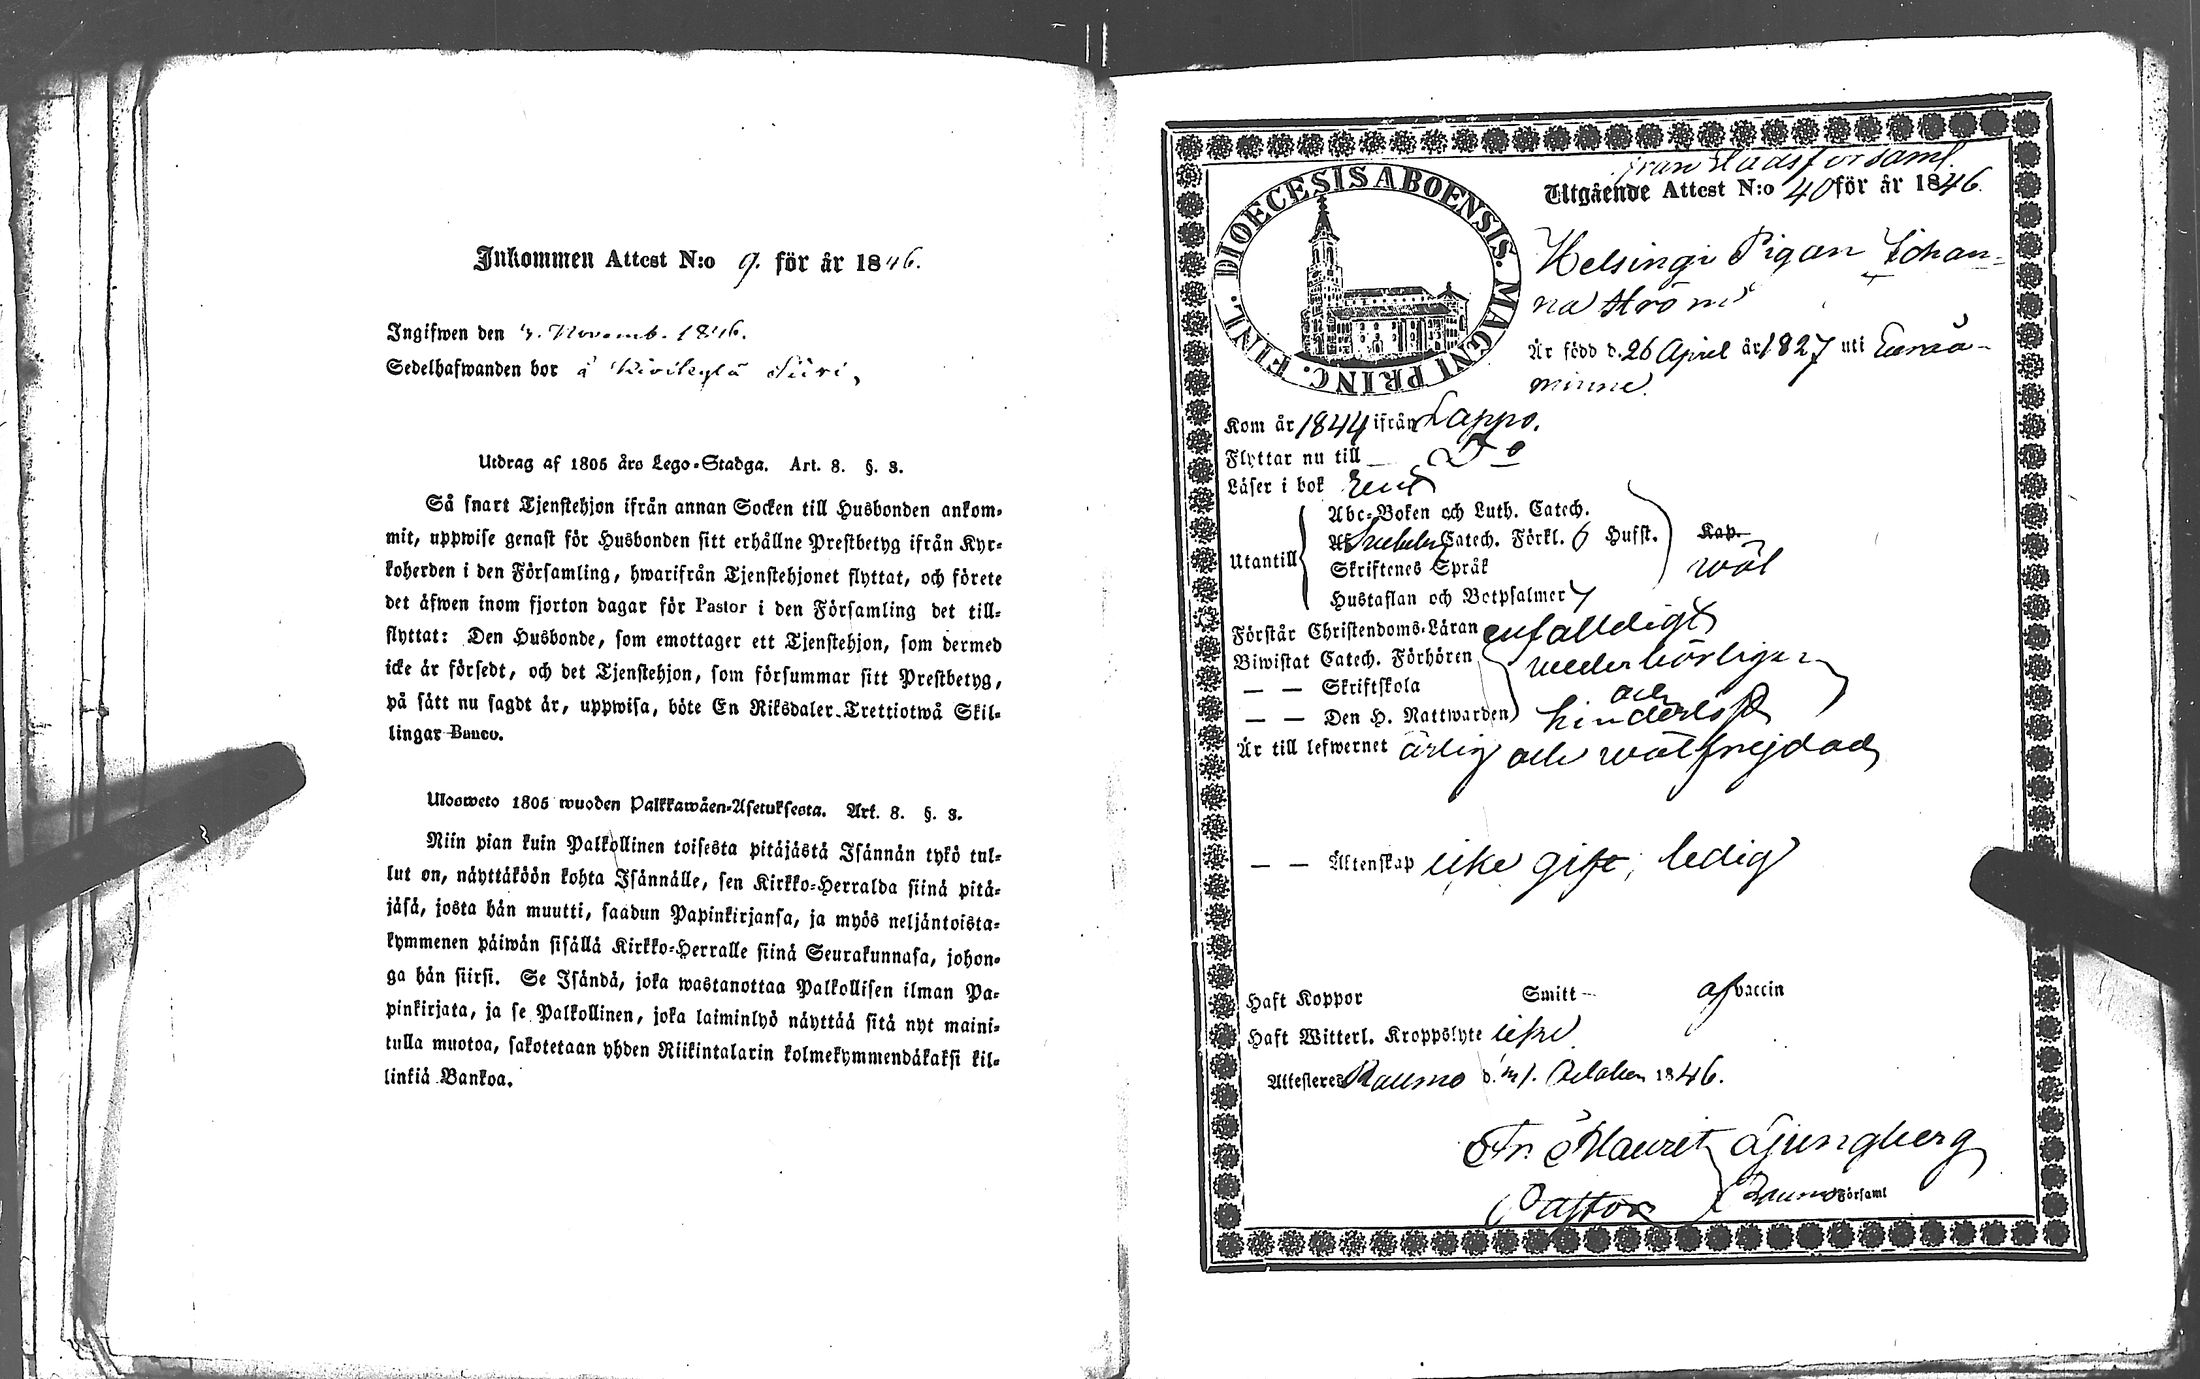 Inkommen Attest N:o 9. för år 1846.
Ingifwen den 4. Novemb. 1846.
Sedelhafwanden bor å Kivikylä Siiri,
Utdrag af 1805 års Lego-Stadga. Art. 8. §. 3.
Så snart Tjenstehjon ifrån annan Socken till Husbonden ankom-
mit, uppwise genast för Husbonden sitt erhållne Prestbetyg ifrån Kyr-
koherden i den Församling, hwarifrån Tjenstehjonet flyttat, och förete
det äfwen inom fjorton dagar för Pastor i den Församling det till-
flyttat: Den Husbonde, som emottager ett Tjenstehjon, som dermed
icke är försedt, och det Tjenstehjon, som försummar sitt Prestbetyg,
på sätt nu sagdt är, uppwisa, böte En Riksdaler Trettiotwå Skil-
lingar Banco.
Ulosweto 1805 wuoden Palkkawäen-Asetuksesta. Art. 8. §. 3.
Niin pian kuin Palkollinen toisesta pitäjästä Isännän tykö tul-
lut on, näyttäköön kohta Isännälle, sen Kirkko-Herralda siinä pitä-
jäsä, josta hän muutti, saadun Papinkirjansa, ja myös neljäntoista-
kymmenen päiwän sisällä Kirkko-Herralle siinä Seurakunnasa, johon-
ga hän siirsi. Se Isändä, joka wastanottaa Palkollisen ilman Pa-
pinkirjata, ja se Palkollinen, joka laiminlyö näyttää sitä nyt maini-
tulla muotoa, sakotetaan yhden Riikintalarin kolmekymmendäkaksi kil-
linkiä Bankoa.
från Stadsförsaml.
Utgående Attest N:o 40 för år 1846.
DIOECESIS ABOENSIS. MAGNI PRINC. FINL.
Helsingi Pigan Johan-
na Ström
Är född d. 26 April år 1827 uti Euraå-
minne.
Kom år 1844 ifrån Lappo.
Flyttar nu till D:o
Läser i bok rent
Abc-Boken och Luth. Catech.
Catech. Förkl. 6 Husst. Kap.
Utantill Skriftenes Språk wäl
Hustaflan och Botpsalmer 7
Förstår Christendoms-Läran enfaldigt
Biwistat Catech. Förhören wederbörligen
— — Skriftskola och
— — Den H. Nattwarden hinderlöst
Är till lefwernet ärlig och wälfrejdad
— — Äktenskap icke gift, ledig
Haft Koppor Smitt af vaccin
Haft Witterl. Kroppslyte icke
Attesteres Raumo d. 1. October 1846.
Fr. Mauret Ljungberg
Pastor Raumo Församl